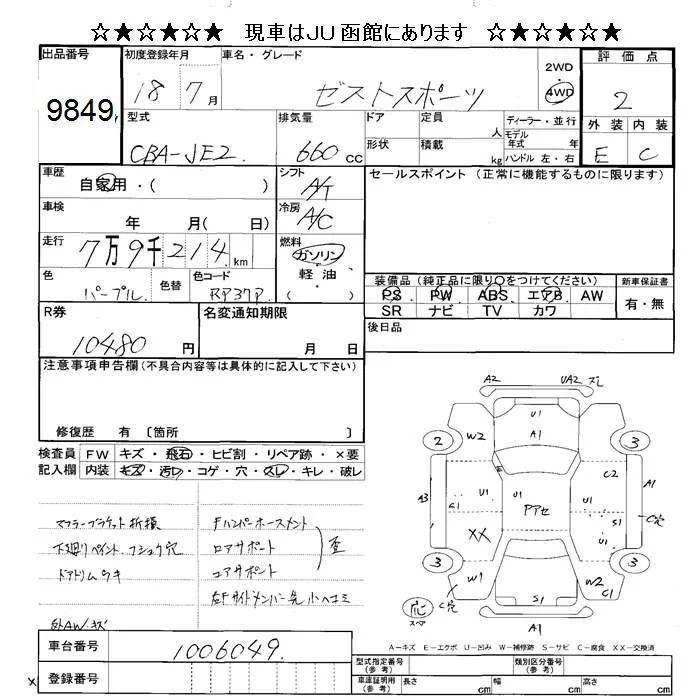 ☆★☆★☆★ 現車はJU函館にあります ☆★☆★☆★
出品番号 9849
初度登録年月 18 7月
車名・グレード ゼストスポーツ
2WD ・ 4WD
評価点 2
外装 E 内装 C
型式 CBA-JE2
排気量 660 CC
ドア 定員 人
形状 積載 kg
ディーラー・並行
モデル年式 年
ハンドル 左・右
車歴 自家用・( )
シフト A/T
セールスポイント (正常に機能するものに限ります)
車検 年 月( 日)
冷房 A/C
走行 7万9千214km
燃料 ガソリン・軽油・( )
色 パープル 色替 色コード RP37P
装備品 (純正品に限り○をつけてください)
PS PW ABS エアB AW
SR ナビ TV カワ
新車保証書 有・無
R券 10480 円
名変通知期限 月 日
後日品
注意事項申告欄 (不具合内容等は具体的に記入して下さい)
修復歴 有 〔箇所 〕
検査員記入欄 FW キズ・飛石・ヒビ割・リペア跡・×要
内装 キズ・汚レ・コゲ・穴・スレ・キレ・破レ
マフラーブラケット折損
下廻りペイント、フショク穴
ドアトリムウキ
外AW・キズ
Fバンパーホースメント
ロアサポート
コアサポート
歪
左Fサイドメンバー先小ヘコミ
A2 UA2 ズレ
U1
A1
2 W2 3
C2
A3 G1 U1 U1 PアセU1 A1
XX S1 C穴
U1
3 W1 W2 3
C穴 S1 C1
スペア A1
A-キズ E-エクボ U-凹み W-補修跡 S-サビ C-腐食 XX-交換済
車台番号 1006049
登録番号
型式指定番号(参考) 類別区分番号(参考)
車庫証明用(参考) 長さ cm 幅 cm 高さ cm